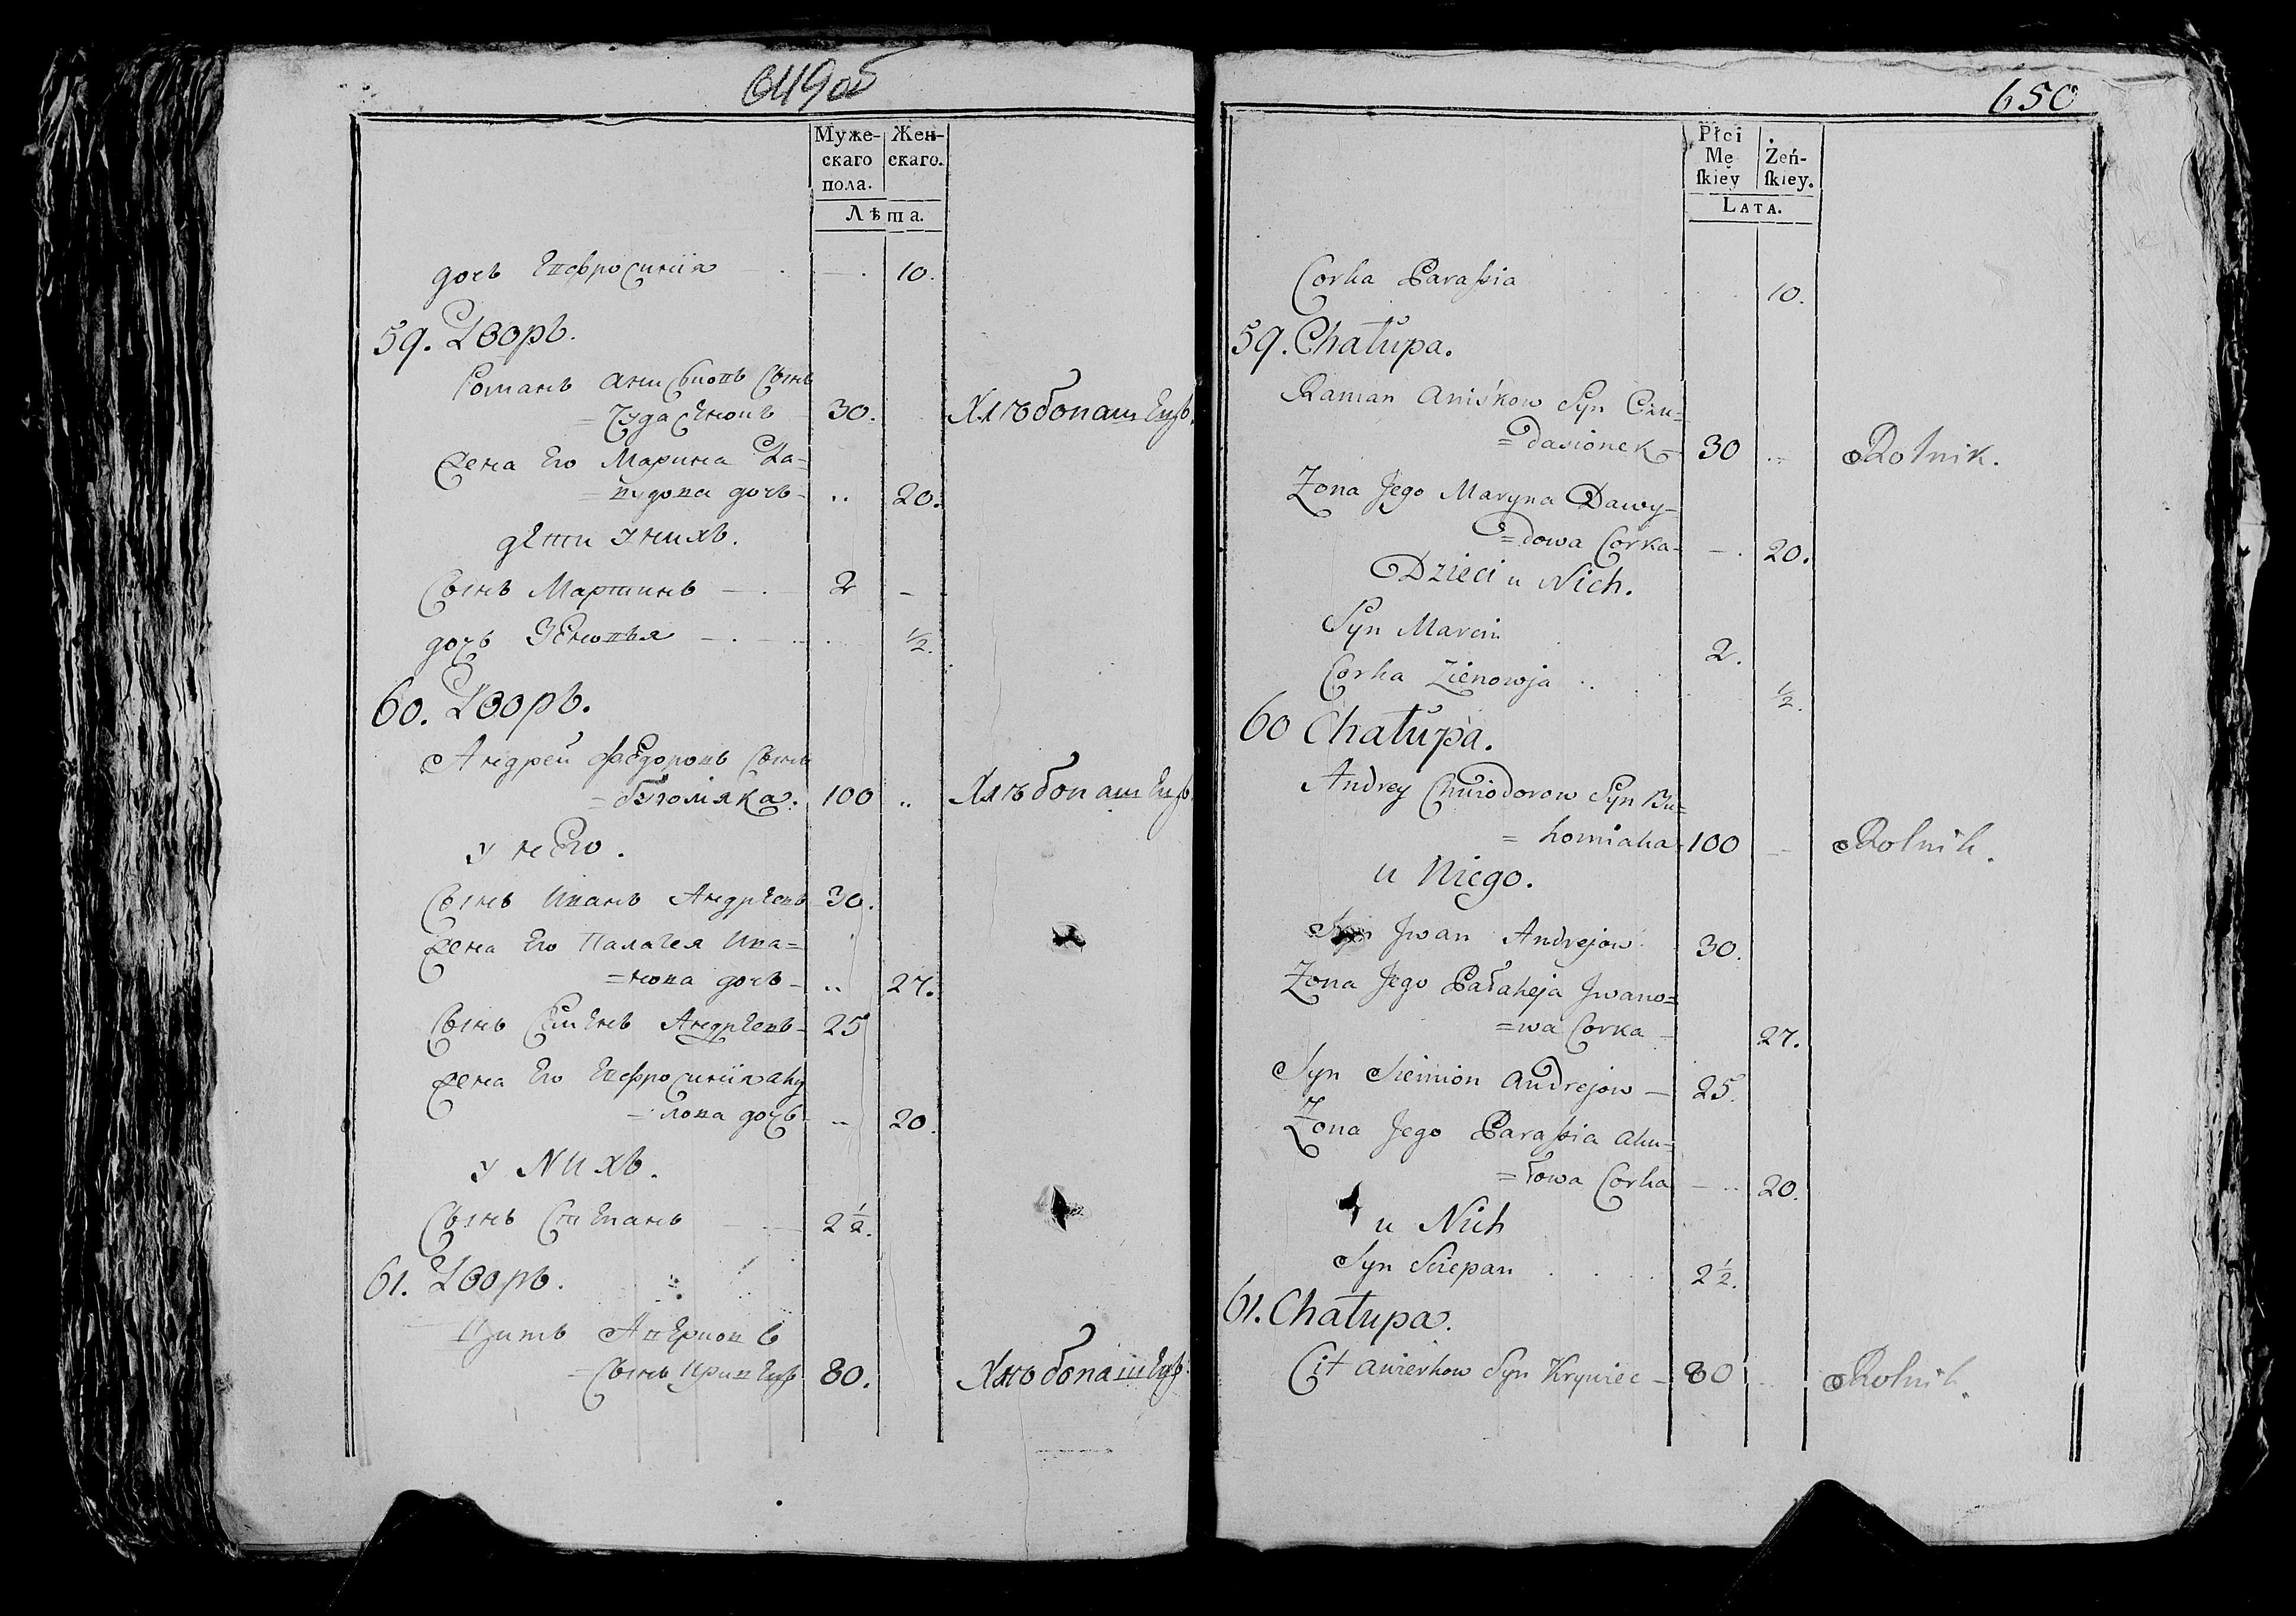 649об
Муже- Жен-
скаго скаго.
пола.
Лѣта.
дочь Евфросинія 10.
59. Дворъ.
Романъ Анисковъ Сынъ
= Чудасенокъ 30. Хлѣбопашецъ.
Жена Его Марина Да=
= выдова дочь - .. 20.
дети У нихъ.
Сынъ Мартинъ — . 2 -
дочь Зеновья — . — .. ½.
60. Дворъ.
Андрей Федоровъ Сынъ
= бугомяка. 100 .. Хлѣбопашецъ.
у него.
Сынъ Иванъ Андреевъ 30.
Жена Его Палагея Ива=
= нова дочь - .. 27.
Сынъ Семенъ Андреевъ - 25
Жена Его Евфросинія аку
= лова дочь - .. 20.
у нихъ.
Сынъ Степанъ 2½.
61. Дворъ.
Титъ Аверковъ
= Сынъ Кривецъ 80. Хлѣбопашецъ
650
Płci
Mę Żeń-
skiey skiey.
LATA.
Corka Parassia 10.
59. Chałupa.
Raman Aniśkow Syn Czu=
= dasionek - 30 .. Rolnik.
Zona Jego Maryna Dawy=
= dowa Corka - — . 20.
Dzieci u Nich.
Syn Marcin 2.
Corka Zienowja .. ½.
60 Chałupa.
Andrey Chwiodorow Syn Bu=
= homiaka 100 — Rolnik.
u Niego.
Syn Jwan Andrejow 30.
Zona Jego Pałaheja Jwano=
= wa Corka - 27.
Syn Siemion Andrejow — 25.
Zona Jego Parassia Aku=
= łowa Corka — .. 20.
u Nich
Syn Sciepan . . . 2½.
61. Chałupa.
Cit Awierkow Syn Krywiec - 80 Rolnik.